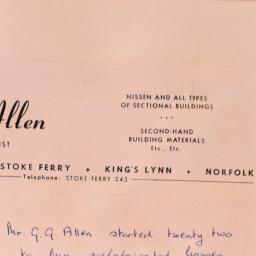 NISSEN AND ALL TYPES
OF SECTIONAL BUILDINGS
Allen
IST
SECOND-HAND
BUILDING MATERIALS
Etc., Etc.
STOKE FERRY + KING'S LYNN + NORFOLK
Telephone: STOKE FERRY 243
Mr. G. G. Allen started twenty two
to buy